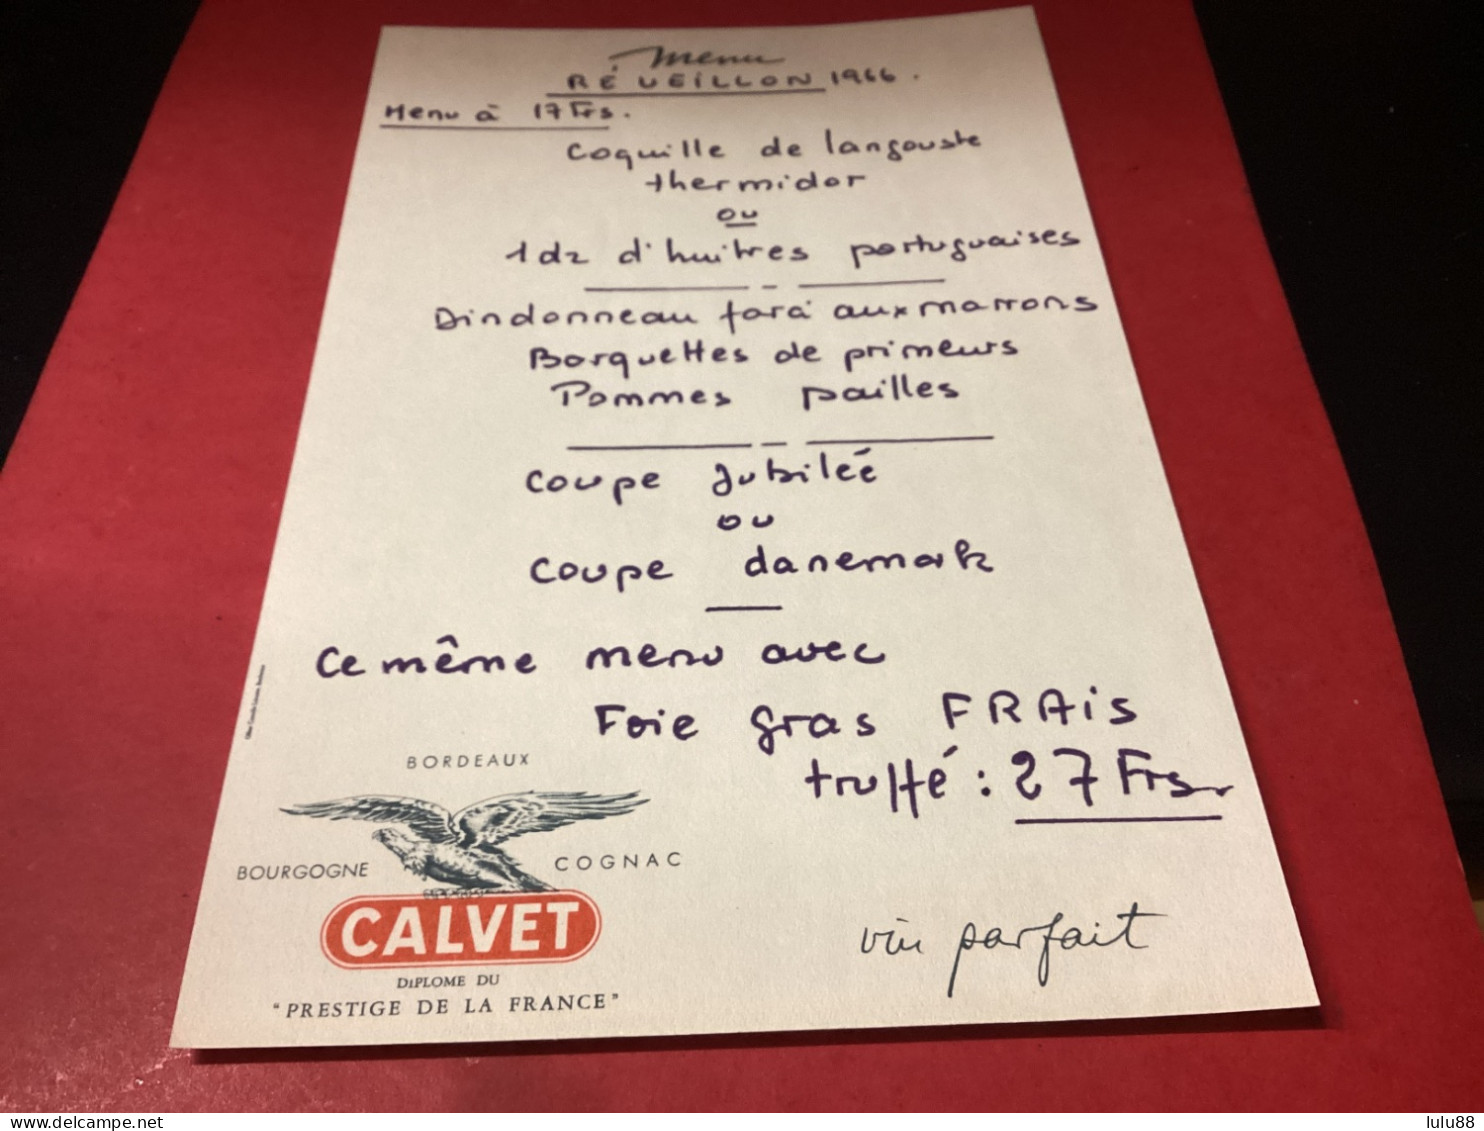 Menu
RÉVEILLON 1966.
Menu à 17 Frs.
Coquille de langouste
thermidor
ou
1 dz d'huitres portuguaises
Dindonneau farci aux marrons
Barquettes de primeurs
Pommes pailles
Coupe Jubilée
ou
Coupe danemark
Ce même menu avec
Foie gras FRAIS
truffé : 27 Frs
BORDEAUX
BOURGOGNE
COGNAC
CALVET
DIPLOME DU
"PRESTIGE DE LA FRANCE"
vin parfait
lulu88